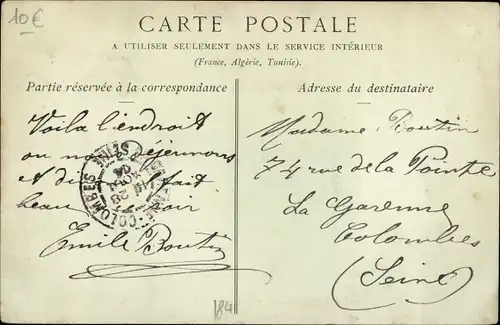 10€
CARTE POSTALE
A UTILISER SEULEMENT DANS LE SERVICE INTÉRIEUR
(France, Algérie, Tunisie).
Partie réservée à la correspondance
Adresse du destinataire
Voila l'endroit
ou nous déjeunons
et fait
beau ce soir
Emile Boutin
Madame Boutin
74 rue de la Pointe
La Garenne
Colombes
(Seine)
COLOMBES SEINE
184